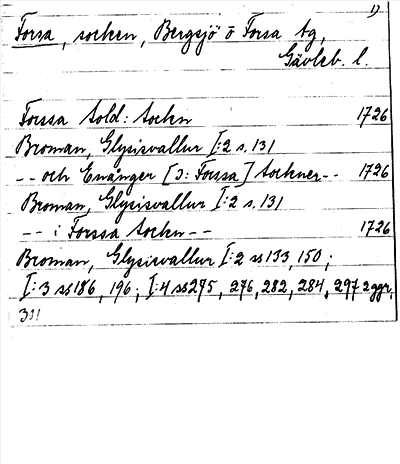 1)
Forsa, socken, Bergsjö o Forsa tg,
Gävleb. l.
Forssa sold: sockn 1726
Broman, Glysisvallur I:2 s. 131
-- och Enånger [ɔ: Forssa] sockner -- 1726
Broman, Glysisvallur I:2 s. 131
-- i Forssa sockn -- 1726
Broman, Glysisvallur I:2 ss 133, 150;
I:3 ss 186, 196; I:4 ss 275, 276, 282, 284, 297 2 ggr.